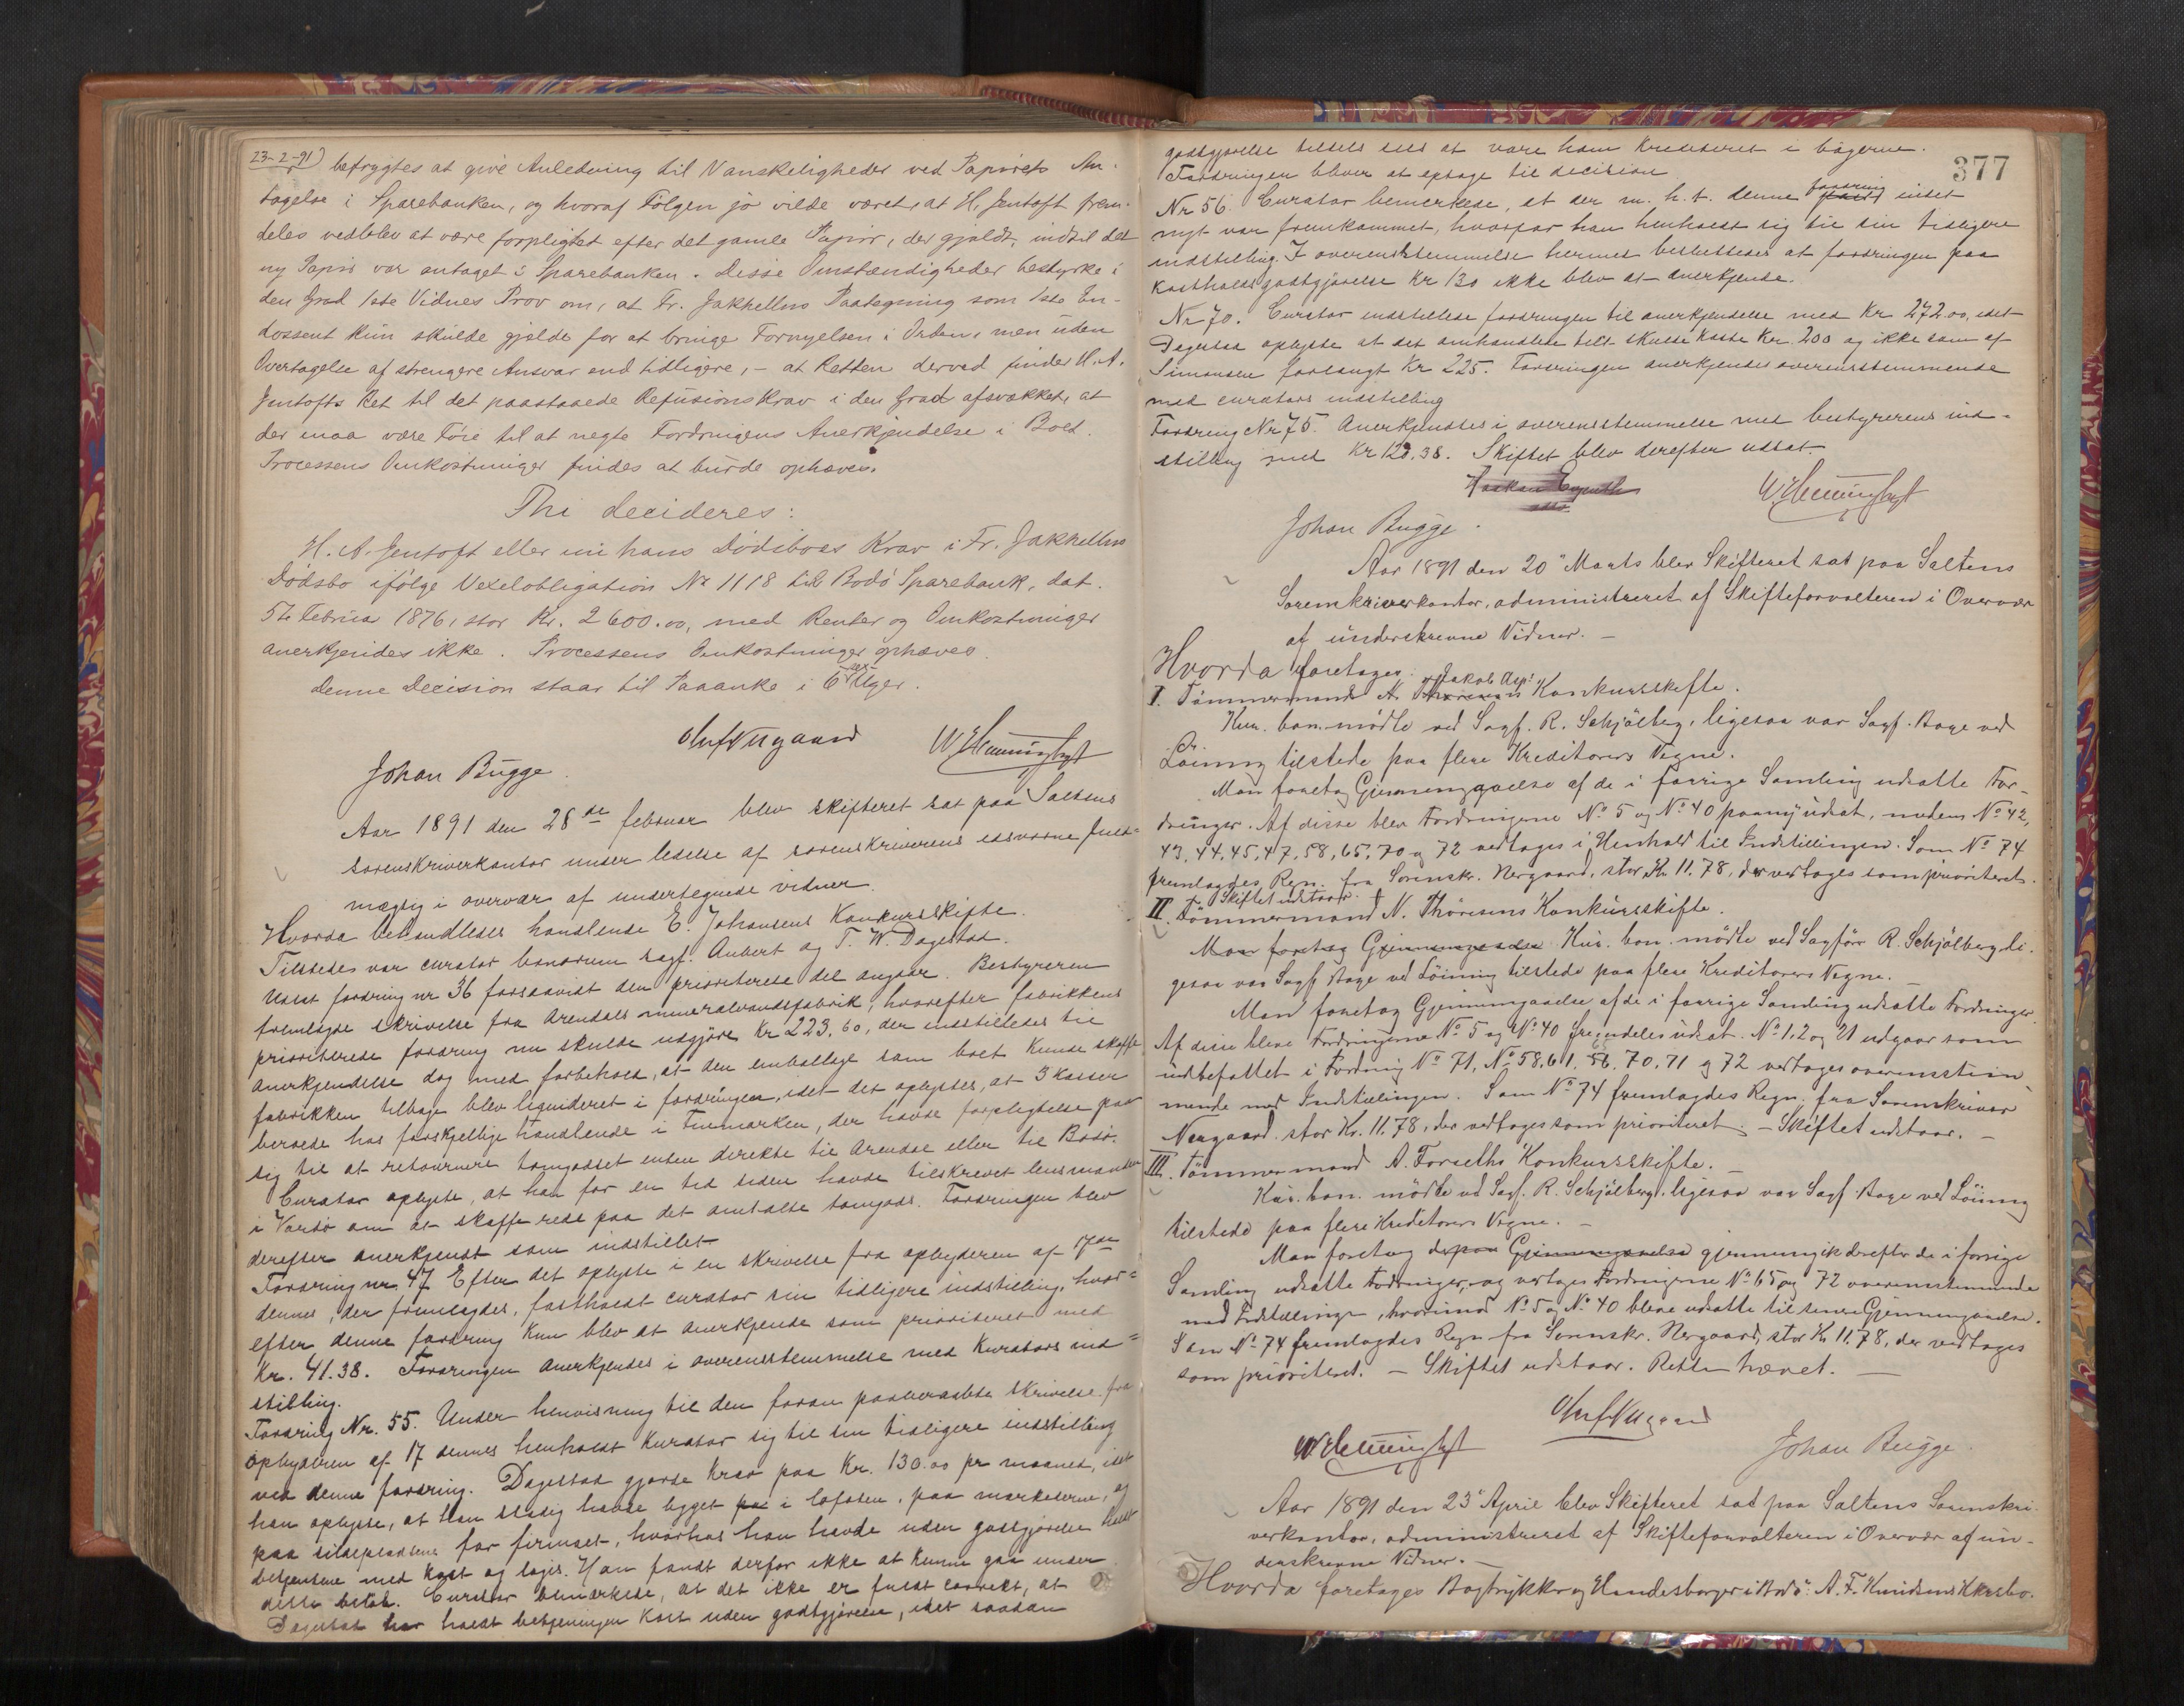 23-2-91) befrygtes at give Anledning til Vanskeligheder ved Papirets An-
tagelse i Sparebanken, og hvoraf Følgen jo vilde været, at H. Jentoft frem-
deles vedblev at være forpligtet efter det gamle Papir, der gjaldt, indtil det
ny Papir var antaget i Sparebanken. Disse Omstændigheder bestyrke i
den Grad 1ste Vidnes Prov om, at Fr. Jakhellns Paategning som 1ste En-
dossent kun skulde gjælde for at bringe Fornyelsen i Orden, men uden
Overtagelse af strengere Ansvar end tidligere, - at Retten derved finder H. A.
Jentofts Ret til det paastaaede Refusionskrav i den Grad afsvækket, at
der maa være Føie til at negte Fordringens Anerkjendelse i Boet.
Processens Omkostninger findes at burde ophæves.
Thi decideres:
H. A. Jentoft eller nu hans Dødsboes Krav i Fr. Jakhellns
Dødsbo ifølge Vexelobligation No 1118 til Bodø Sparebank, dat.
5te Februar 1876, stor Kr. 2600.00, med Renter og Omkostninger
anerkjendes ikke. Processens Omkostninger ophæves.
Denne Decision staar til Paaanke i 6 sex Uger.
Johan Bugge
Aar 1891 den 28de februar blev skifteret sat paa Saltens
sorenskriverkontor under ledelse af sorenskriverens edsvorne fuld-
mægtig i overvær af undertegnede vidner.
Hvorda behandledes handlende E. Johansens Konkursskifte.
Tilstedes var curator bonorum sagf. Aubert og T. W. Dagestad.
Udsat fordring nr 36 forsaavidt den prioriterede del angaar. Bestyreren
fremlagde skrivelse fra Arendals mineralvandsfabrik, hvorefter fabrikkens
prioriterede fordring nu skulde udgjøre Kr 223.60, der indstilledes til
anerkjendelse dog med forbehold, at den emballage som boet kunde skaffe
fabrikken tilbage blev liquideret i fordringen, idet det oplystes, at 3 kasser
beroede hos forskjellige handlende i Finmarken, der havde forpligtelse paa
sig til at retournere tomgodset enten direkte til Arendal eller til Bodø.
Curator oplyste, at han for en tid siden havde tilskrevet lensmanden
i Vardø om at skaffe rede paa det omtalte tomgods. Fordringen blev
derefter anerkjendt som indstillet
Fordring nr. 47 Efter det oplyste i en skrivelse fra opbyderen af 17de
dennes, der fremlagdes, fastholdt curator sin tidligere indstilling, hvor-
efter denne fordring kun blev at anerkjende som prioriteret med
Kr. 41.38. Fordringen anerkjendes i overensstemmelse med Kurators ind-
stilling.
Fordring Nr. 55. Under henvisning til den foran paaberaabte skrivelse fra
opbyderen af 17 dennes henholdt Kurator sig til sin tidligere indstilling
ved denne fordring. Dagestad gjorde krav paa Kr. 130.00 pr maaned, idet
han oplyste, at han stadig havde ligget paa i Lofoten, paa markederne, og
paa sildepladsene for firmaet, hvorhos han havde uden godtgjørelse holdt
betjentene med kost og logis. Han fandt derfor ikke at kunne gaa under
dette beløb. Curator bemærkede, at det ikke er fuldt correkt, at
Dagestad har holdt betjeningen kost uden godtgjørelse, idet saadan
377
godtgjørelse tildels sees at være ham krediteret i bøgerne.
Fordringen bliver at optage til decision
Nr 56. Curator bemerkede, at der m. h. t. denne fordring intet
nyt var fremkommet, hvorfor han henholdt sig til sin tidligere
indstilling. I overensstemmelse hermed besluttedes at fordringen paa
kostholdsgodtgjørelse Kr 130 ikke blev at anerkjende.
Nr 70. Curator indstillede fordringen til anerkjendelse med Kr 272.00, idet
Dagestad oplyste at det omhandlede telt skulde koste Kr. 200 og ikke som af
Simonsen forlangt Kr 225. Fordringen anerkjendes overensstemmende
med curators indstilling
Fordring Nr 75. Anerkjendtes i overensstemmelse med bestyrerens ind-
stilling med Kr 120.38. Skiftet blev derefter udsat.
Johan Bugge
Aar 1891 den 20de Marts blev Skifteret sat paa Saltens
Sorenskriverkontor, administreret af Skifteforvalteren i Overvær
af underskrevne Vidner. -
Hvorda foretages:
I. Tømmermand A. Thoresens Jakob Asp's Konkursskifte.
Kur. bon. mødte ved Sagf. R. Schjølberg, ligesaa var Sagf. Aage ved
Lôinng tilstede paa flere Kreditorers Vegne.
Man foretog Gjennemgaaelse af de i forrige Samling udsatte For-
dringer. Af disse blev Fordringerne No 5 og No 40 paany udsat, medens No 42,
43, 44, 45, 47, 58, 65, 70 og 72 vedtages i Henhold til Indstillingen. Som No 74
fremlagdes Regn. fra Sorenskr. Nergaard, stor Kr. 11.78, der vedtages som prioriteret.
Skiftet udstaar.
II. Tømmermand N. Thoresens Konkursskifte.
Man foretog Gjennemgaaelse Kur. bon. mødte ved Sagfør R. Schjølberg li-
gesaa var Sagf Aage ved Lôinng tilstede paa flere Kreditorers Vegne.
Man foretog Gjennemgaaelse af de i forrige Samling udsatte Fordringer.
Af disse bleve Fordringerne No 5 og No 40 fremdeles udsat. No 1, 2 og 21 udgaar som
indbefattet i Fordring No 71, No 58, 61, 65, 70, 71 og 72 vedtages overensstem-
mende med Indstillingen. Som No 74 fremlagdes Regn. fra Sorenskriver
Nergaard stor Kr. 11.78, der vedtages som prioriteret. - Skiftet udstaar. -
III. Tømmermand A. Forseths Konkursskifte. -
Kur. bon. mødte ved Sagf. R. Schjølberg, ligesaa var Sagf Aage ved Lôinng
tilstede paa flere Kreditorers Vegne. -
Man foretog derpaa Gjennemgaaelse gjennemgik derefter de i forrige
Samling udsatte Fordringer, og vedtages Fordringerne No 65 og 72 overensstemmende
med Indstillingen, hvorimod No 5 og No 40 bleve udsatte til senere Gjennemgaaelse.
Som No 74 fremlagdes Regn. fra Sorenskr. Nergaard, stor Kr 11.78, der vedtages
som prioriteret. - Skiftet udstaar. Retten hævet. -
Johan Bugge.
Aar 1891 den 23de April blev Skifteret sat paa Saltens Sorenskri-
verkontor, administreret af Skifteforvalteren i Overvær af un-
derskrevne Vidner. -
Hvorda foretages Bogtrykker og Handelsborger i Bodø A. F. Knudsens Kkrsbo.